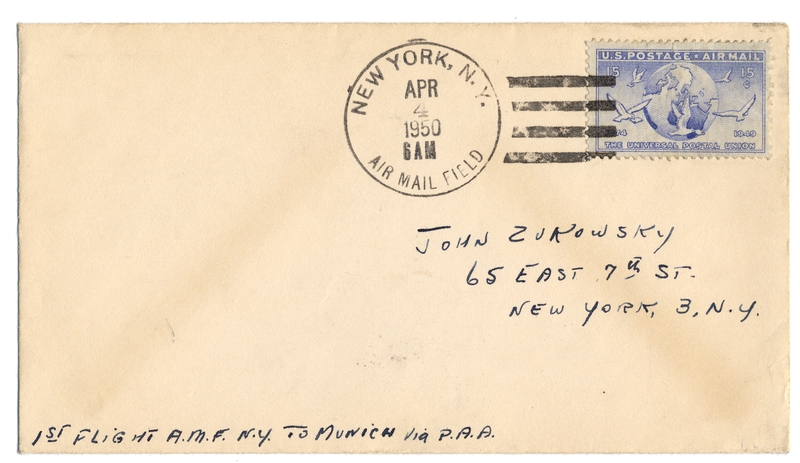 NEW YORK, N.Y.
APR
4
1950
6 AM
AIR MAIL FIELD
U.S. POSTAGE • AIR MAIL
15 15
¢
74 1949
THE UNIVERSAL POSTAL UNION
JOHN ZUKOWSKY
65 EAST 7th ST.
NEW YORK, 3, N.Y.
1ST FLIGHT A.M.F. N.Y. TO MUNICH Via P.A.A.